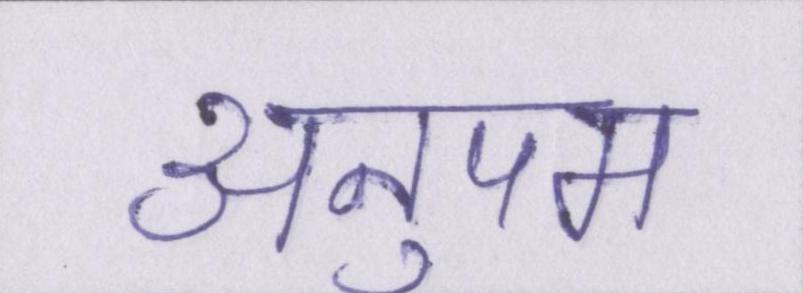 अनुपम